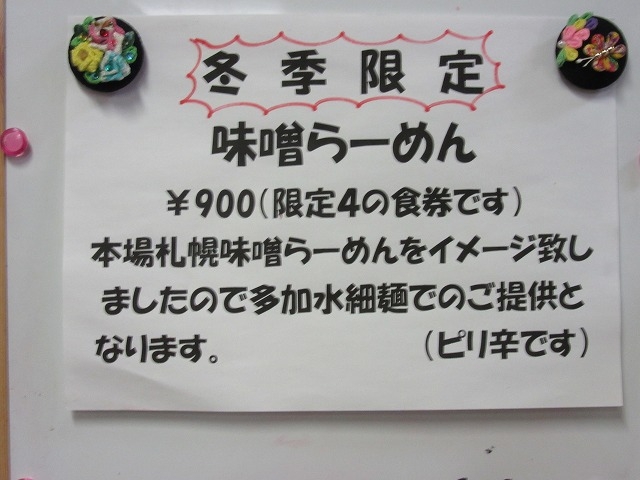 冬季限定
味噌らーめん
￥900（限定4の食券です）
本場札幌味噌らーめんをイメージ致し
ましたので多加水細麺でのご提供と
なります。　（ピリ辛です）